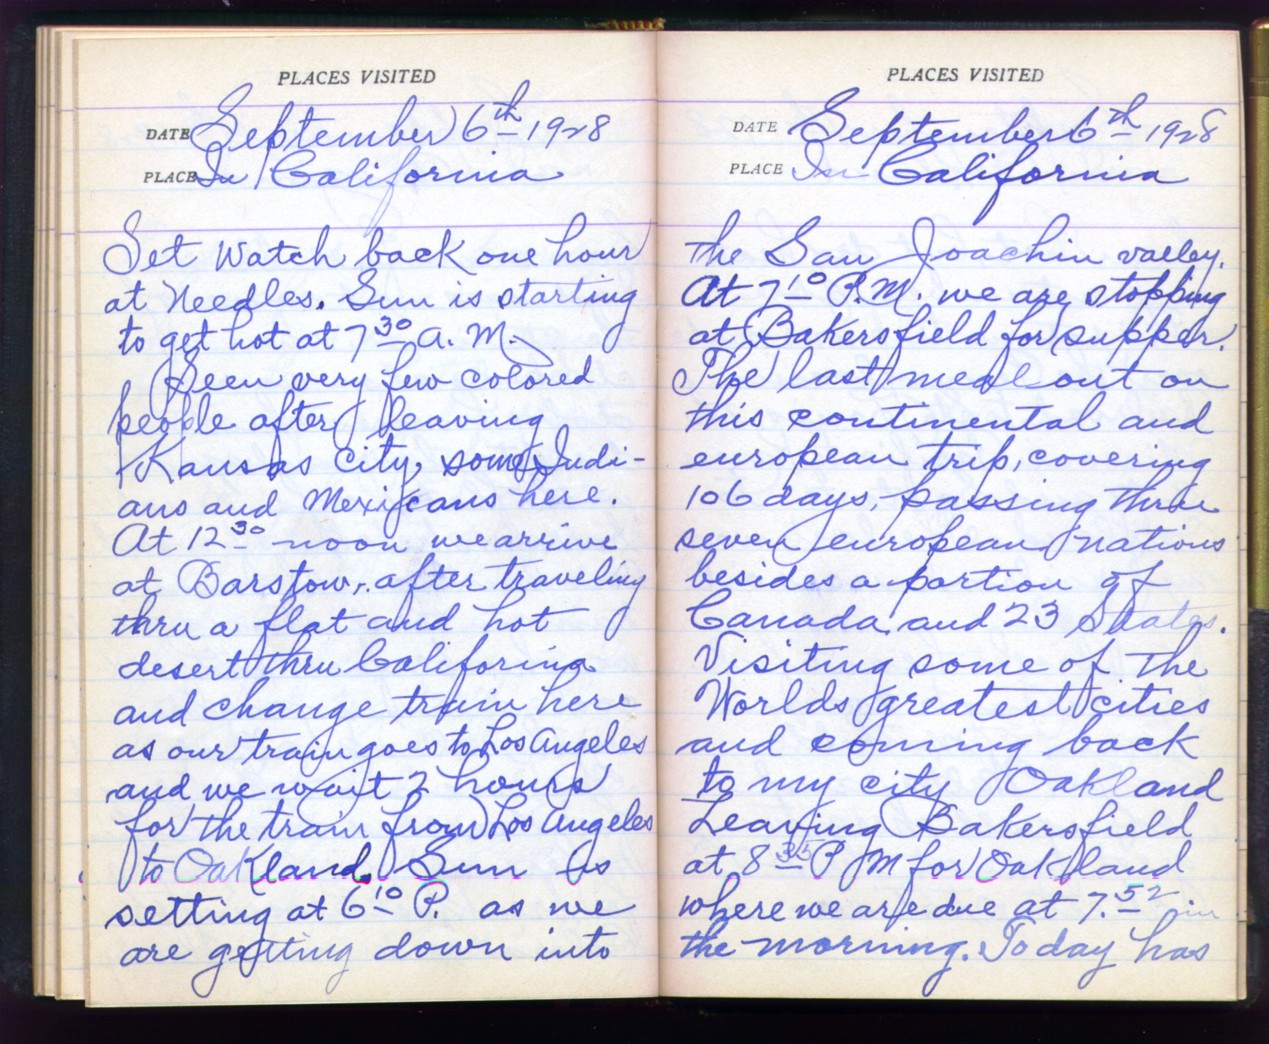 PLACES VISITED
DATE September 6th 1928
PLACE In California
Set Watch back one hour
at Needles. Sun is starting
to get hot at 7 30 A. M.
Seen very few colored
people after leaving
Kansas City, some Indi-
ans and Mexicans here.
At 12 30 noon we arrive
at Barstow, after traveling
thru a flat and hot
desert thru California
and change train here
as our train goes to Los Angeles
and we wait 2 hours
for the train from Los Angeles
to Oakland. Sun is
setting at 6 10 P. as we
are getting down into
PLACES VISITED
DATE September 6th 1928
PLACE In California
the San Joachin valley.
At 7 10 P.M. we are stopping
at Bakersfield for supper.
The last meal out on
this continental and
european trip, covering
106 days, passing thru
seven european nations
besides a portion of
Canada and 23 States.
Visiting some of the
Worlds greatest cities
and coming back
to my city Oakland
Leaving Bakersfield
at 8 35 P M for Oakland
where we are due at 7.52 in
the morning. Today has